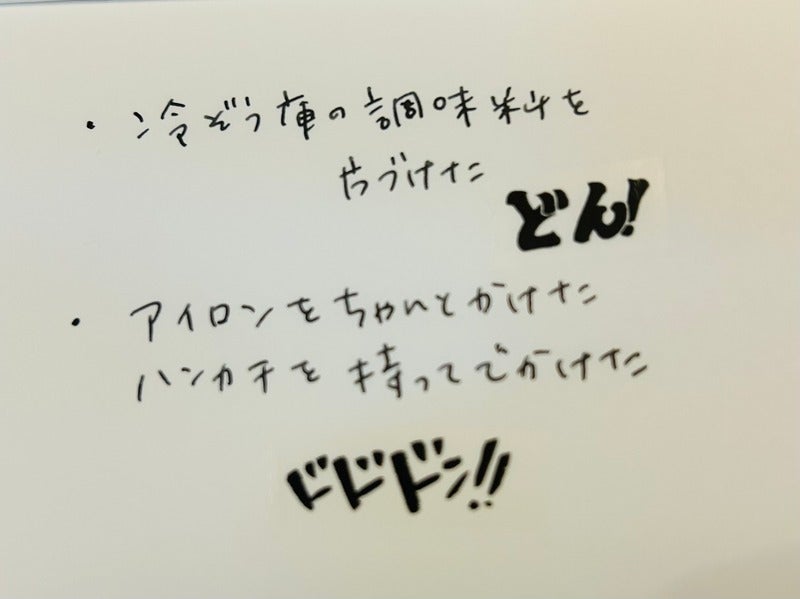 ・冷ぞう庫の調味料を
片づけた
どん!
・アイロンをちゃんとかけた
ハンカチを持ってでかけた
ドドドン!!